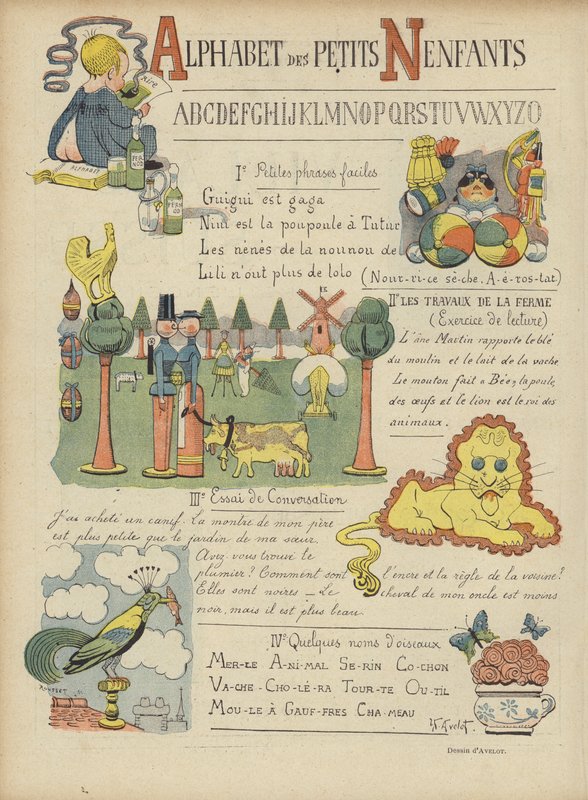 ALPHABET DES PETITS NENFANTS
ABCDEFGHIJKLMNOPQRSTUVWXYZO
LIRE
ALPHABET
PER NOD
PERN OD
Iº Petites phrases faciles
Guigui est gaga
Nini est la poupoule à Tutur
Les nénés de la nounou de
Lili n'ont plus de lolo (Nour-ri-ce sè-che. A-é-ros-tat.)
IIº LES TRAVAUX DE LA FERME
(Exercice de lecture)
L'âne Martin rapporte le blé
du moulin et le lait de la vache
Le mouton fait « Bée », la poule,
des œufs et le lion est le roi des
animaux.
IIIº Essai de Conversation
J'ai acheté un canif. La montre de mon père
est plus petite que le jardin de ma sœur.
Avez-vous trouvé le
plumier? Comment sont l'encre et la règle de la voisine?
Elles sont noires — Le cheval de mon oncle est moins
noir, mais il est plus beau.
IVº Quelques noms d'oiseaux
MER-LE A-NI-MAL SE-RIN CO-CHON
VA-CHE - CHO-LÉ-RA TOUR-TE OU-TIL
MOU-LE À GAUF-FRES CHA-MEAU
H. Avelot.
Dessin d'AVELOT.